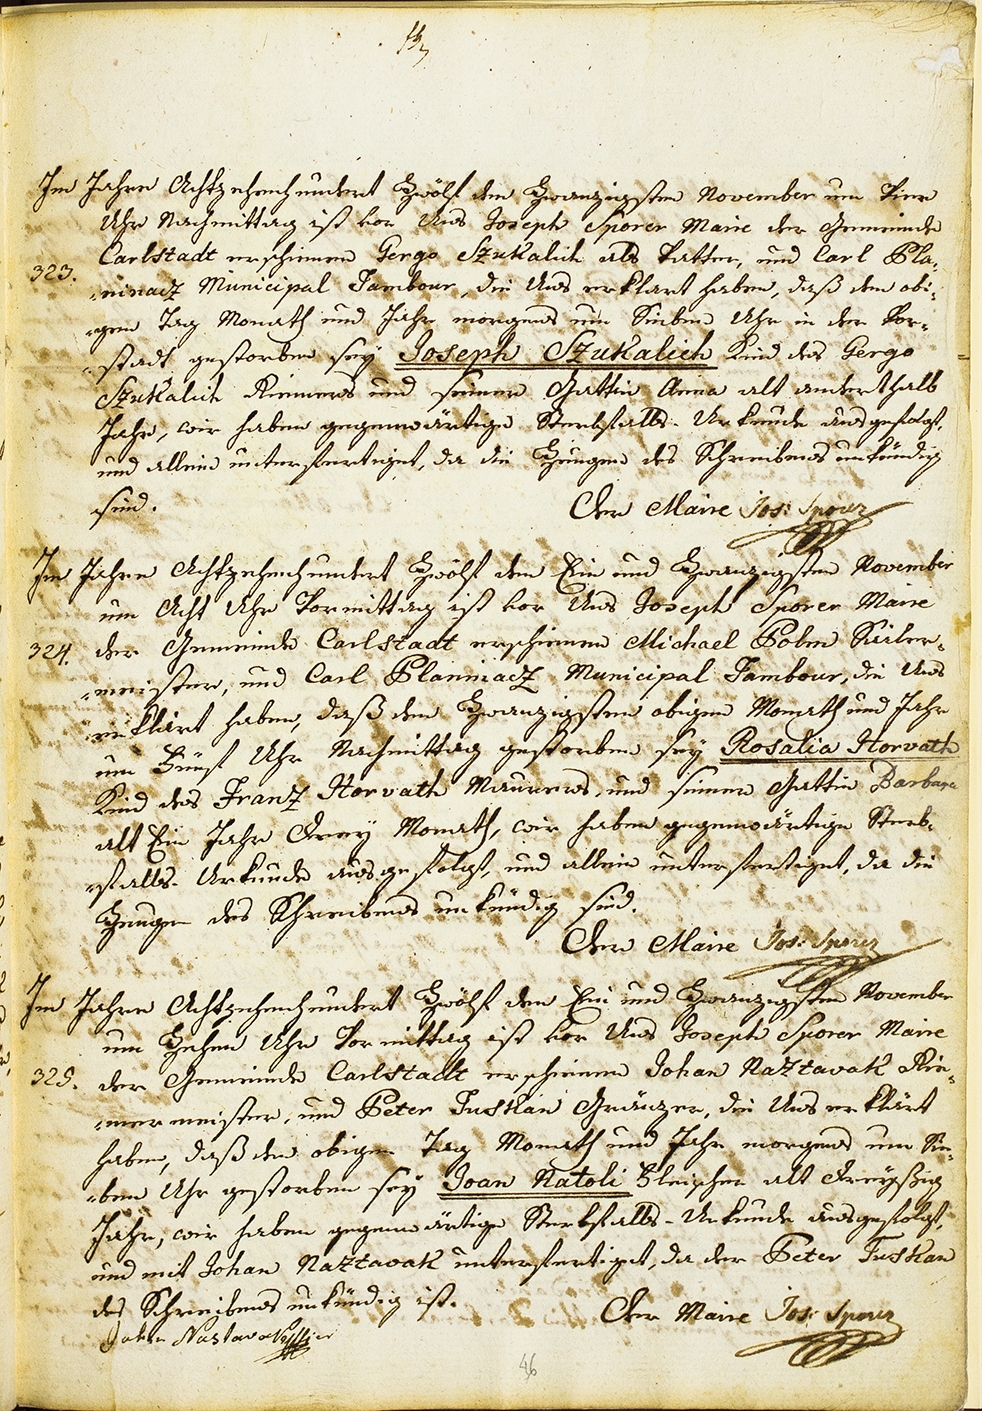 Im Jahre Achtzehenhundert Zwölf den Zwanzigsten November um Vier
Uhr Nachmittag ist vor Uns Joseph Sporer Maire der Gemeinde
Carlstadt erschienen Gergo Szukalich als Vatter, und Carl Pla-
323.
-ninacz Municipal Tambour, die Uns erklärt haben, daß den obi-
-gen Tag Monath und Jahr morgens um Sieben Uhr in der Vor-
-stadt gestorben sey Joseph Szukalich Kind des Gergo
Szukalich Riemers und seiner Gattin Anna alt anderthalb
Jahr, wir haben gegenwärtige Sterbfalls-Urkunde ausgefolgt,
und allein unterfertiget, da die Zeugen des Schreibens unkündig
sind.
Der Maire Jos: Sporer
Im Jahre Achtzehenhundert Zwölf den Ein und Zwanzigsten November
um Acht Uhr Vormittag ist vor Uns Joseph Sporer Maire
324. der Gemeinde Carlstadt erschienen Michael
-meister, und Carl Planinacz Municipal Tambour, die Uns
erklärt haben, daß den Zwanzigsten obigen Monath und Jahr
um Fünf Uhr Nachmittag gestorben sey Rosalia Horvath
Kind des Franz Horvath Maurers, und seiner Gattin Barbara
alt Ein Jahr Drey Monath, wir haben gegenwärtige Sterb-
-falls-Urkunde ausgefolgt, und allein unterfertiget, da die
Zeugen des Schreibens unkündig sind.
Der Maire Jos: Sporer
Im Jahre Achtzehenhundert Zwölf den Ein und Zwanzigsten November
um Zehen Uhr Vormittag ist vor Uns Joseph Sporer Maire
325. der Gemeinde Carlstadt erschienen Johan Naztavak Rie-
-mermeister, und Peter Tuskan Gränzer, die Uns erklärt
haben, daß den obigen Tag Monath und Jahr morgens um Sie-
-ben Uhr gestorben sey Joan Natoli Fleischer alt Dreyßig
Jahr, wir haben gegenwärtige Sterbfalls-Urkunde ausgefolgt,
und mit Johan Naztavak unterfertiget, da der Peter Tuskan
des Schreibens unkündig ist.
Der Maire Jos: Sporer
46